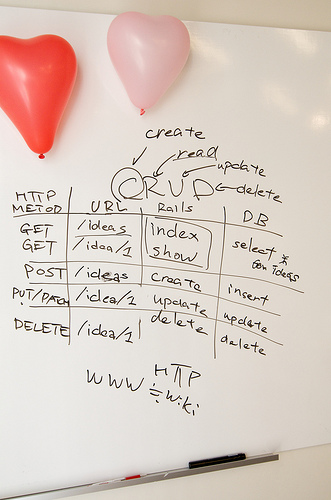 create
read
update
CRUD ← delete
HTTP METOD URL Rails DB
GET /ideas index select * from ideas
GET /idea/1 show
POST /ideas create insert
PUT/PATCH /idea/1 update update
DELETE /idea/1 delete delete
WWW HTTP
≒ Wiki